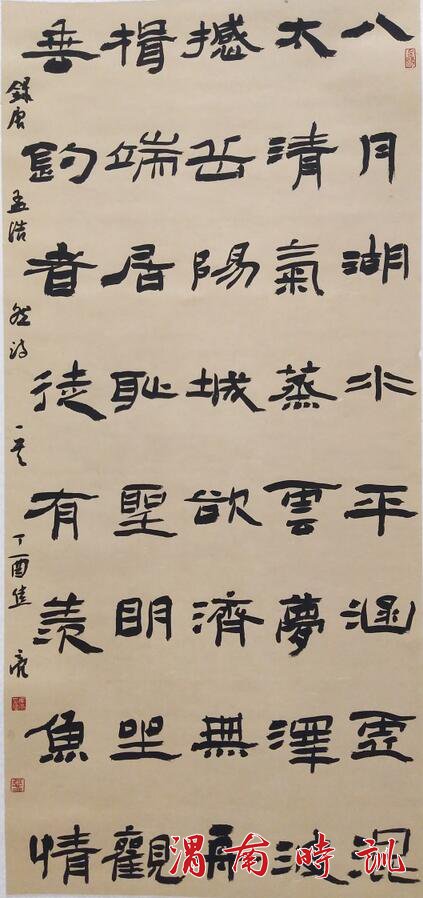 八月湖水平涵虛混
太清氣蒸雲夢澤波
撼岳陽城欲濟無舟
楫端居恥聖明坐觀
垂釣者徒有羡魚情
錄唐孟浩然詩一首丁酉
渭南時訊